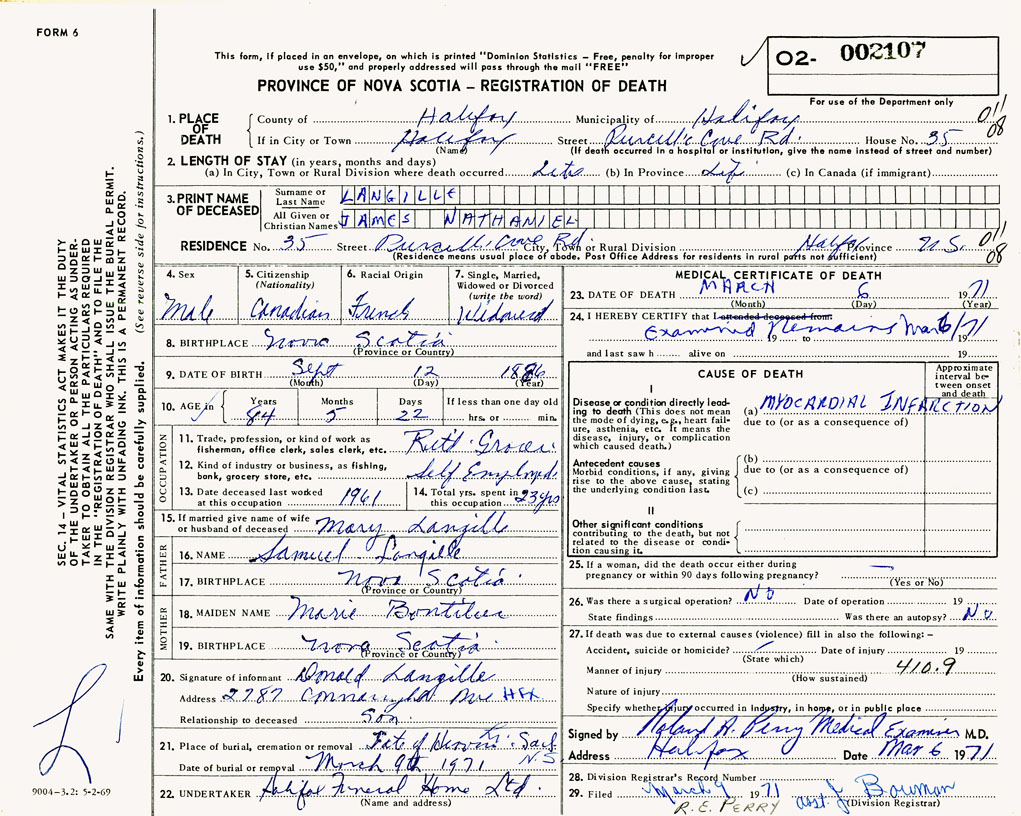 FORM 6
This form, if placed in an envelope, on which is printed "Dominion Statistics - Free, penalty for improper
use $50," and properly addressed will pass through the mail "FREE"
02- 002107
PROVINCE OF NOVA SCOTIA - REGISTRATION OF DEATH
For use of the Department only
011
08
1. PLACE OF DEATH County of Halifax Municipality of Halifax
If in City or Town Halifax Street Purcell's Cove Rd. House No. 35
(Name) (If death occurred in a hospital or institution, give the name instead of street and number)
2. LENGTH OF STAY (in years, months and days)
(a) In City, Town or Rural Division where death occurred Life (b) In Province Life (c) In Canada (if immigrant)
3. PRINT NAME OF DECEASED Surname or Last Name LANGILLE
All Given or Christian Names JAMES NATHANIEL
RESIDENCE No. 35 Street Purcell's Cove Rd. City, Town or Rural Division Halifax Province N.S. 011
08
(Residence means usual place of abode. Post Office Address for residents in rural parts not sufficient)
4. Sex
Male
5. Citizenship
(Nationality)
Canadian
6. Racial Origin
French
7. Single, Married,
Widowed or Divorced
(write the word)
Widowed
8. BIRTHPLACE Nova Scotia
(Province or Country)
9. DATE OF BIRTH Sept 12 1886
(Month) (Day) (Year)
10. AGE in Years Months Days If less than one day old
84 5 22 hrs. or min.
OCCUPATION
11. Trade, profession, or kind of work as
fisherman, office clerk, sales clerk, etc. Ret'd Grocer
12. Kind of industry or business, as fishing,
bank, grocery store, etc. Self Employed
13. Date deceased last worked
at this occupation 1961
14. Total yrs. spent in
at this occupation 23 yrs
15. If married give name of wife
or husband of deceased Mary Langille
FATHER
16. NAME Samuel Langille
17. BIRTHPLACE Nova Scotia
(Province or Country)
MOTHER
18. MAIDEN NAME Marie
19. BIRTHPLACE Nova Scotia
(Province or Country)
20. Signature of informant Donald Langille
Address 2787 Connaught Ave HFX
Relationship to deceased Son.
21. Place of burial, cremation or removal
N.S
Date of burial or removal March 9th 1971
22. UNDERTAKER Halifax Funeral Home Ltd.
(Name and address)
MEDICAL CERTIFICATE OF DEATH
23. DATE OF DEATH MARCH 6 1971
(Month) (Day) (Year)
24. I HEREBY CERTIFY that I attended deceased from:
Examined Remains Mar 6/71
19 to
and last saw h alive on 19
CAUSE OF DEATH
Approximate
interval be-
tween onset
and death
I
Disease or condition directly lead-
ing to death (This does not mean
the mode of dying, e.g., heart fail-
ure, asthenia, etc. It means the
disease, injury, or complication
which caused death.)
(a) MYOCARDIAL INFARCTION
due to (or as a consequence of)
Antecedent causes
Morbid conditions, if any, giving
rise to the above cause, stating
the underlying condition last.
(b)
due to (or as a consequence of)
(c)
II
Other significant conditions
contributing to the death, but not
related to the disease or condi-
tion causing it.
25. If a woman, did the death occur either during
pregnancy or within 90 days following pregnancy? —
(Yes or No)
26. Was there a surgical operation? NO Date of operation 19
State findings Was there an autopsy? No
27. If death was due to external causes (violence) fill in also the following: -
Accident, suicide or homicide? Date of injury 19
(State which)
Manner of injury 410.9
(How sustained)
Nature of injury
Specify whether injury occurred in industry, in home, or in public place
Signed by Roland A. Perry Medical Examiner M.D.
Address Halifax Date Mar 6 1971
28. Division Registrar's Record Number
29. Filed March 9 1971 Asst. J Bowman
R. E. PERRY (Division Registrar)
SEC. 14 - VITAL STATISTICS ACT MAKES IT THE DUTY
OF THE UNDERTAKER OR PERSON ACTING AS UNDER-
TAKER TO OBTAIN ALL THE PARTICULARS REQUIRED
IN THE "REGISTRATION OF DEATH" AND TO FILE THE
SAME WITH THE DIVISION REGISTRAR WHO SHALL ISSUE THE BURIAL PERMIT.
WRITE PLAINLY WITH UNFADING INK. THIS IS A PERMANENT RECORD.
Every item of information should be carefully supplied. (See reverse side for instructions.)
9004-3.2: 5-2-69